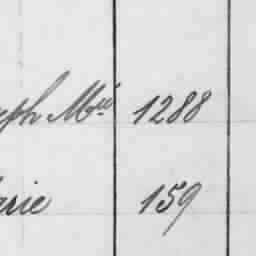 eph Mie 1288
arie 159